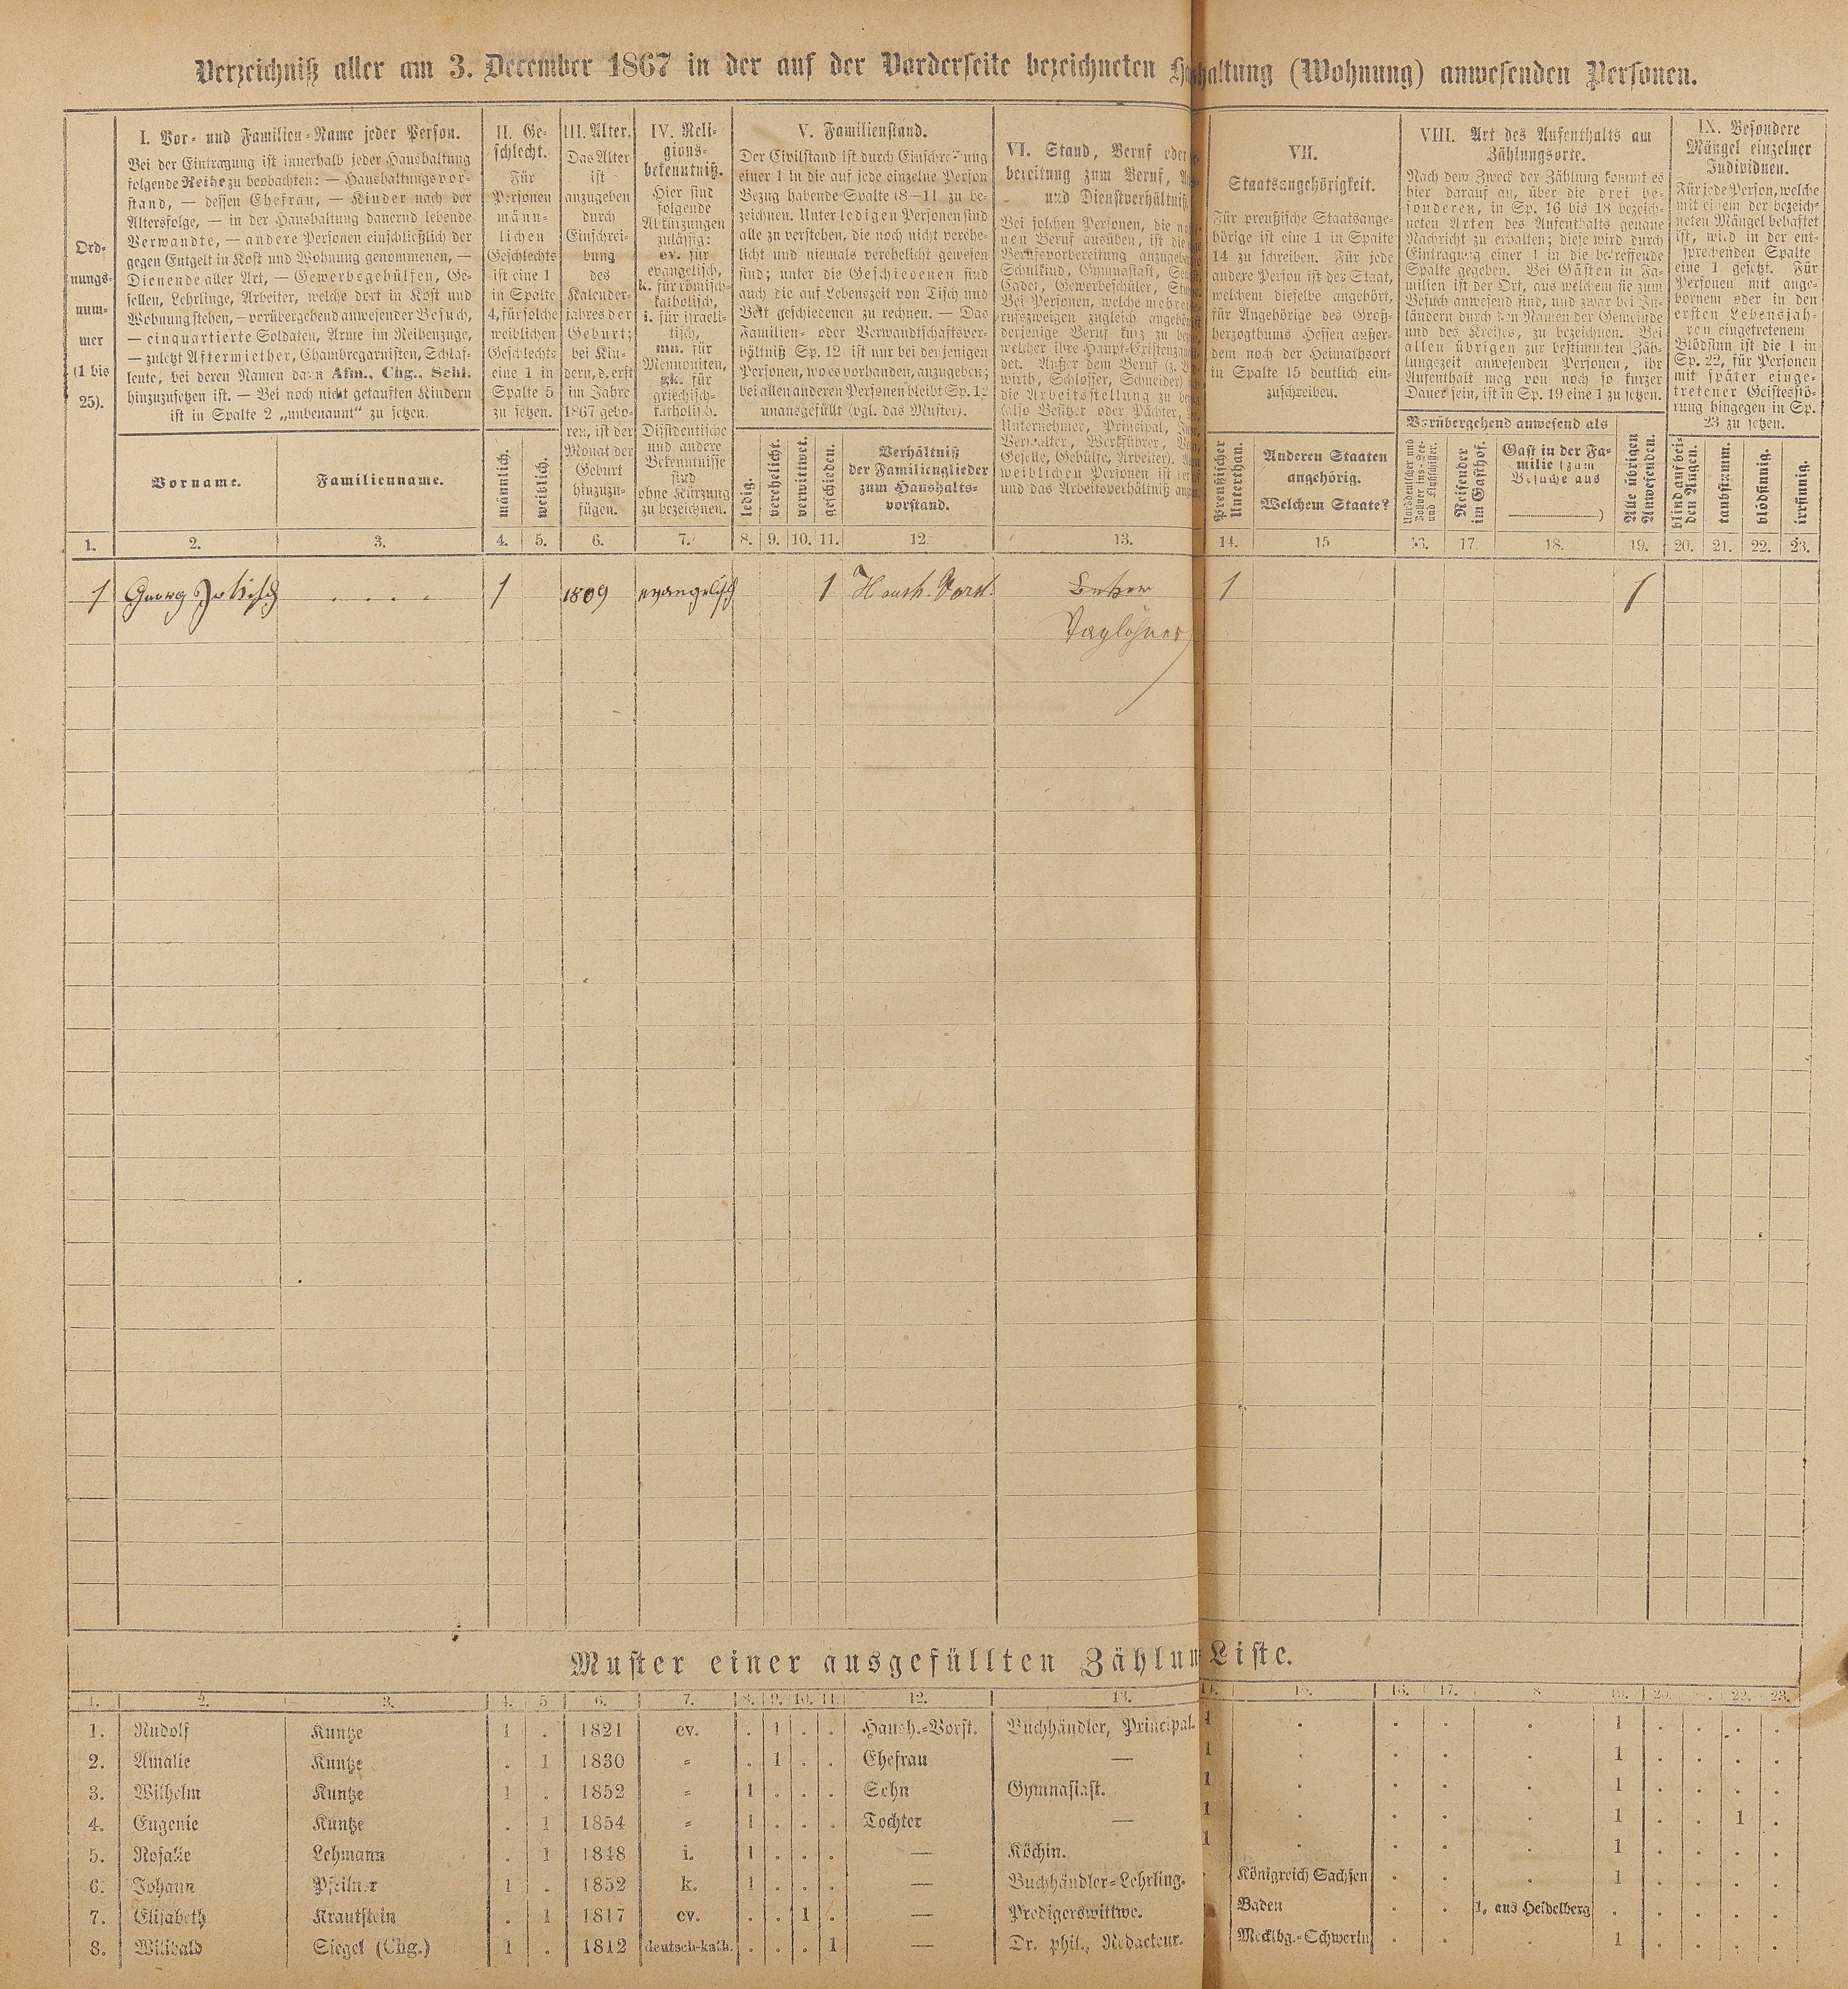 Verzeichniß aller am 3. December 1867 in der auf der Vorderseite bezeichneten Haushaltung (Wohnung) anwesenden Personen.
Ord-
nungs-
num-
mer
(1 bis
25).
I. Vor- und Familien-Name jeder Person.
Bei der Eintragung ist innerhalb jeder Haushaltung
folgende Reihe zu beobachten: — Haushaltungsvor-
stand, — dessen Ehefrau, — Kinder nach der
Altersfolge, — in der Haushaltung dauernd lebende
Verwandte, — andere Personen einschließlich der
gegen Entgelt in Kost und Wohnung genommenen, —
Dienende aller Art, — Gewerbsgehülfen, Ge-
sellen, Lehrlinge, Arbeiter, welche dort in Kost und
Wohnung stehen, — vorübergehend anwesender Besuch,
— einquartierte Soldaten, Arme im Reihenzuge,
— zuletzt Aftermiether, Chambregarnisten, Schlaf-
leute, bei deren Namen dann Afm., Chg., Schl.
hinzuzusetzen ist. — Bei noch nicht getauften Kindern
ist in Spalte 2 „unbenannt“ zu setzen.
Vorname.
Familienname.
II. Ge-
schlecht.
Für
Personen
männ-
lichen
Geschlechts
ist eine 1
in Spalte
4, für solche
weiblichen
Geschlechts
eine 1 in
Spalte 5
zu setzen.
männlich.
weiblich.
III. Alter.
Das Alter
ist
anzugeben
durch
Einschrei-
bung
des
Kalender-
jahres der
Geburt;
bei Kin-
dern, d. erst
im Jahre
1867 gebo-
ren, ist der
Monat der
Geburt
hinzuzu-
fügen.
IV. Reli-
gions-
bekenntniß.
Hier sind
folgende
Abkürzungen
zulässig:
ev. für
evangelisch,
k. für römisch-
katholisch,
i. für israeli-
tisch,
mn. für
Mennoniten,
gk. für
griechisch-
katholisch.
Dissidentische
und andere
Bekenntnisse
sind
ohne Kürzung
zu bezeichnen.
V. Familienstand.
Der Civilstand ist durch Einschreibung
einer 1 in die auf jede einzelne Person
Bezug habende Spalte (8—11 zu be-
zeichnen. Unter ledigen Personen sind
alle zu verstehen, die noch nicht verehe-
licht und niemals verehelicht gewesen
sind; unter die Geschiedenen sind
auch die auf Lebenszeit von Tisch und
Bett geschiedenen zu rechnen. — Das
Familien- oder Verwandtschaftsver-
hältniß Sp. 12 ist nur bei denjenigen
Personen, wo es vorhanden, anzugeben;
bei allen anderen Personen bleibt Sp. 12
unausgefüllt (vgl. das Muster).
ledig.
verehelicht.
verwittwet.
geschieden.
Verhältniß
der Familienglieder
zum Haushalts-
vorstand.
VI. Stand, Beruf oder
bereitung zum Beruf,
und Dienstverhältniß.
Bei solchen Personen, die
nen Beruf ausüben, ist die
Berufsvorbereitung anzugeben
Schulkind, Gymnasiast,
Cadet, Gewerbeschüler,
Bei Personen, welche mehreren
rufszweigen zugleich
derjenige Beruf kurz zu
welcher ihre
det. Außer dem Beruf (z. B.
wirth, Schlosser, Schneider)
die Arbeitsstellung zu
(also Besitzer oder Pächter,
Unternehmer, Principal,
Verwalter, Werkführer,
Geselle, Gehülfe, Arbeiter).
weiblichen Personen ist
und das Arbeitsverhältniß
VII.
Staatsangehörigkeit.
Für preußische Staatsange-
hörige ist eine 1 in Spalte
14 zu schreiben. Für jede
andere Person ist der Staat,
welchem dieselbe angehört,
für Angehörige des Groß-
herzogthums Hessen außer-
dem noch der Heimathsort
in Spalte 15 deutlich ein-
zuschreiben.
Preußischer
Unterthan.
Anderen Staaten
angehörig.
Welchem Staate?
VIII. Art des Aufenthalts am
Zählungsorte.
Nach dem Zweck der Zählung kommt es
hier darauf an, über die drei be-
sonderen, in Sp. 16 bis 18 bezeich-
neten Arten des Aufenthalts genaue
Nachricht zu erhalten; diese wird durch
Eintragung einer 1 in die betreffende
Spalte gegeben. Bei Gästen in Fa-
milien ist der Ort, aus welchem sie zum
Besuch anwesend sind, und zwar bei In-
ländern durch den Namen der Gemeinde
und des Kreises, zu bezeichnen. Bei
allen übrigen zur bestimmten Zäh-
lungszeit anwesenden Personen, ihr
Aufenthalt mag von noch so kurzer
Dauer sein, ist in Sp. 19 eine 1 zu setzen.
Vorübergehend anwesend als
Norddeutscher und
Zollver ins-See-
und Flußschiffer.
Reisender
im Gasthof.
Gast in der Fa-
milie (zum
Besuche aus
)
Alle übrigen
Anwesenden.
IX. Besondere
Mängel einzelner
Individuen.
Für jede Person, welche
mit einem der bezeich-
neten Mängel behaftet
ist, wird in der ent-
sprechenden Spalte
eine 1 gesetzt. Für
Personen mit ange-
bornem oder in den
ersten Lebensjah-
ren eingetretenem
Blödsinn ist die 1 in
Sp. 22, für Personen
mit später einge-
tretener Geistesstö-
rung hingegen in Sp.
23 zu setzen.
blind auf bei-
den Augen.
taubstumm.
blödsinnig.
irrsinnig.
1. 2. 3. 4. 5. 6. 7. 8. 9. 10. 11. 12. 13. 14. 15 16. 17. 18. 19. 20. 21. 22. 23.
1 Georg . . . . 1 1809 evangelisch 1 Haush. Vorst. 1 1
Taglöhner
Muster einer ausgefüllten Zählungs-Liste.
1. 2. 3. 4. 5 6. 7. 8. 9. 10. 11. 12. 13. 14. 15. 16. 17. 8 19. 20. 22. 23.
1. Rudolf Kuntze 1 . 1821 ev. . 1 . . Haush.-Vorst. Buchhändler, Principal. 1 . . . . 1 . . . .
2. Amalie Kuntze . 1 1830 „ . 1 . . Ehefrau — 1 . . . . 1 . . . .
3. Wilhelm Kuntze 1 . 1852 „ 1 . . . Sohn Gymnasiast. 1 . . . . 1 . . . .
4. Eugenie Kuntze . 1 1854 „ 1 . . . Tochter — 1 . . . . 1 . . 1 .
5. Rosalie Lehmann . 1 1848 i. 1 . . . — Köchin. 1 . . . . 1 . . . .
6. Johann Pfeilner 1 . 1852 k. 1 . . . — Buchhändler-Lehrling. . Königreich Sachsen . . . 1 . . . .
7. Elisabeth Krautstein . 1 1817 ev. . . 1 . — Predigerswittwe. Baden . . 1, aus Heidelberg . . . . .
8. Willibald Siegel (Chg.) 1 . 1812 deutsch-kath. . . . 1 — Dr. phil., Redacteur. Mecklbg.-Schwerin . . . 1 . . . .